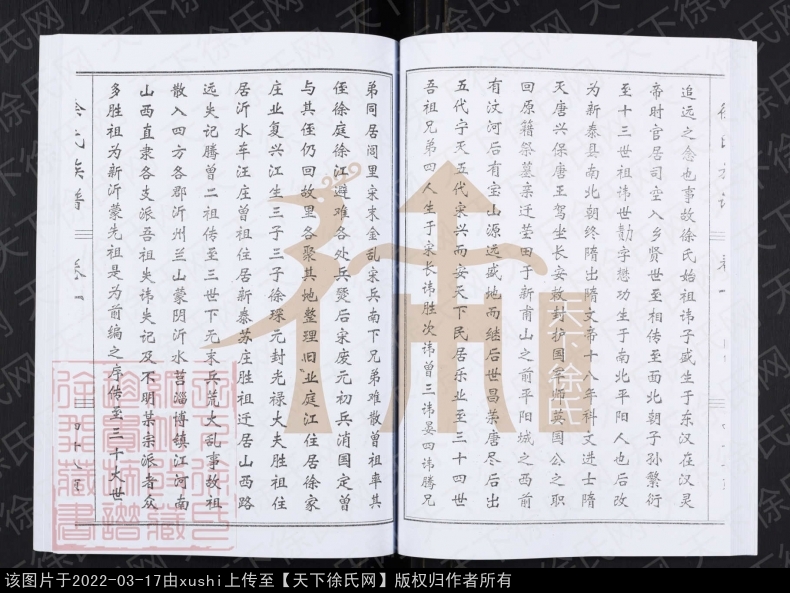 追远之念也事故徐氏始祖讳子盛生于东汉在汉灵
帝时官居司空入乡贤世至相传至面北朝子孙繁衍
至十三世祖讳世勣字懋功生于南北平阳人也后改
为新泰县南北朝终隋出隋文帝十八年科文进士隋
灭唐兴保唐王驾坐长安敕封护国军师英国公之职
回原籍祭墓亲迁茔田于新甫山之前平阳城之西前
有汶河后有宝山源远盛地而继后世昌荣唐尽后出
五代宁灭五代宋兴而安天下民居乐业至三十四世
吾祖兄弟四人生于宋长讳胜次讳曾三讳晏四讳腾兄
弟同居阎里宋末金乱宋兵南下兄弟难散曾祖率其
侄徐庭徐江避难各处兵燹后宋废元初兵消国定曾
与其侄仍回故里各聚其地整理旧业庭江住居徐家
庄业复兴江生三子三子徐琛元封光禄大夫胜祖住
居沂水车汪庄曾祖住居新泰苏庄胜祖迁居山西路
远失记腾曾二祖传至三世下元末兵荒大乱事故祖
散入四方各郡沂州兰山蒙阴沂水莒淄博镇江河南
山西直隶各支派吾祖失讳失记及不明某宗派者众
多胜祖为新沂蒙先祖是为前编之序传至三十大世
徐氏族谱
卷一
天下徐氏
该图片于2022-03-17由xushi上传至【天下徐氏网】版权归作者所有